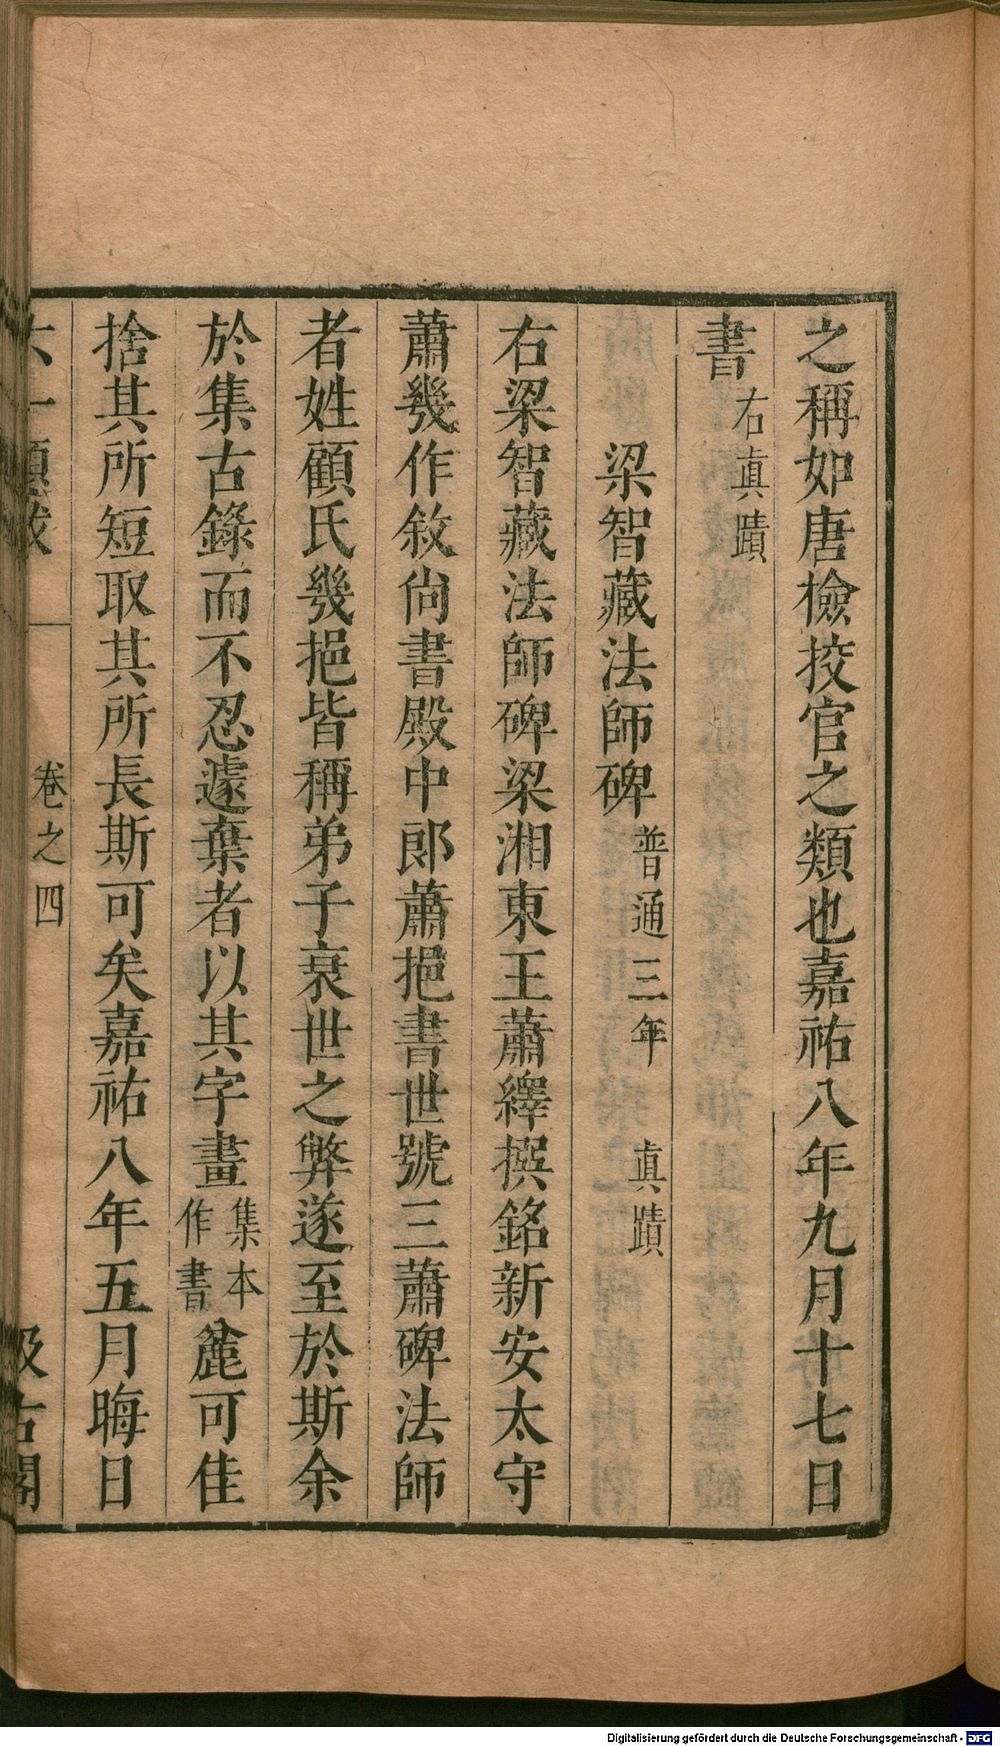 之稱如唐檢挍官之類也嘉祐八年九月十七日
書右眞蹟
梁智藏法師碑普通三年 真蹟
右梁智藏法師碑梁湘東王蕭繹撰銘新安太守
蕭幾作敘尙書殿中郎蕭挹書世號三蕭碑法師
者姓顧氏幾挹皆稱弟子衰世之弊遂至於斯余
於集古錄而不忍遽棄者以其字畫集本作書麄可佳
捨其所短取其所長斯可矣嘉祐八年五月晦日
六一題跋 卷之四 汲古閣
Digitalisierung gefördert durch die Deutsche Forschungsgemeinschaft - DFG